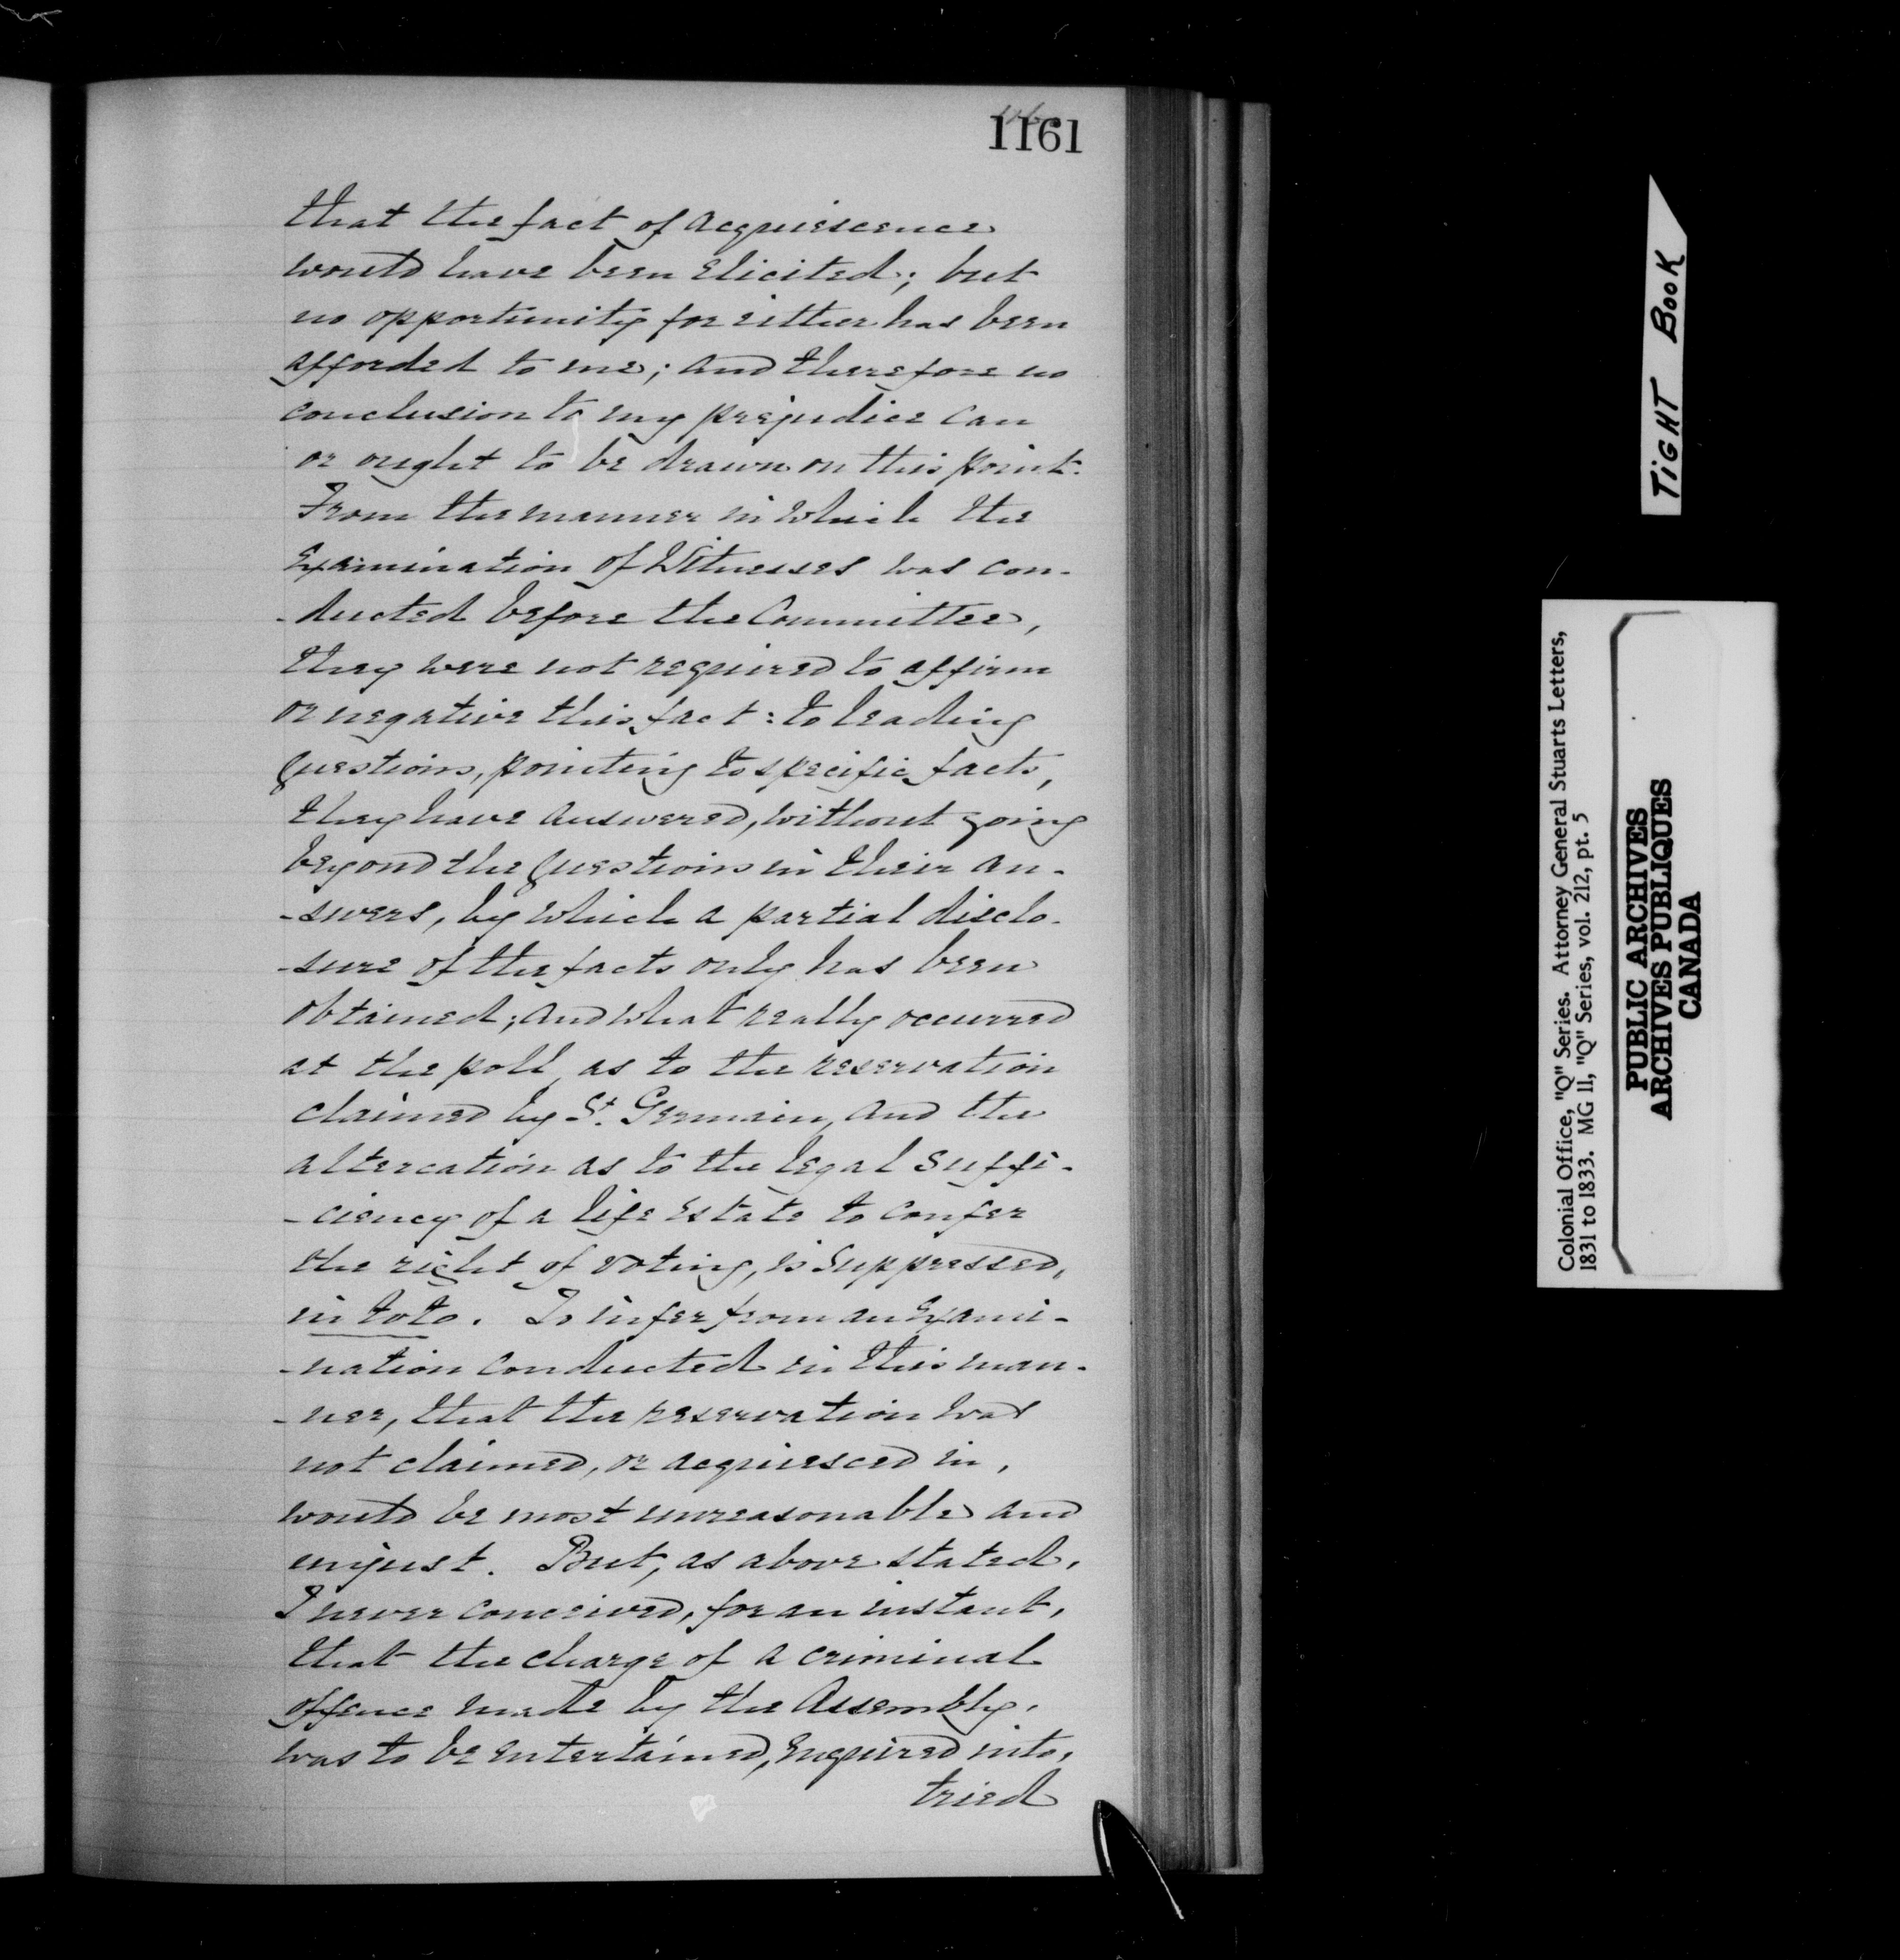 1161
that the fact of acquiescence
would have been elicited; but
no opportunity for either has been
afforded to me; and therefore no
conclusion to my prejudice can
or ought to be drawn on this point.
From the manner in which the
Examination of Witnesses was con-
-ducted before the Committee,
they were not required to affirm
or negative this fact: to leading
Questions, pointing to specific facts,
they have answered, without going
beyond the Questions in their an-
-swers, by which a partial disclo-
-sure of the facts only has been
obtained; and what really occurred
at the poll, as to the reservation
claimed by St. Germain, and the
altercation as to the legal suffi-
-ciency of a life estate to confer
the right of voting, is suppressed,
in toto. To infer from an Exami-
-nation conducted in this man-
-ner, that the reservation was
not claimed, or acquiesced in,
would be most unreasonable and
unjust. But, as above stated,
I never conceived, for an instant,
that the charge of a criminal
offence made by the Assembly,
was to be entertained, enquired into,
tried
TIGHT BOOK
Colonial Office, "Q" Series. Attorney General Stuarts Letters,
1831 to 1833. MG 11, "Q" Series, vol. 212, pt. 5
PUBLIC ARCHIVES
ARCHIVES PUBLIQUES
CANADA